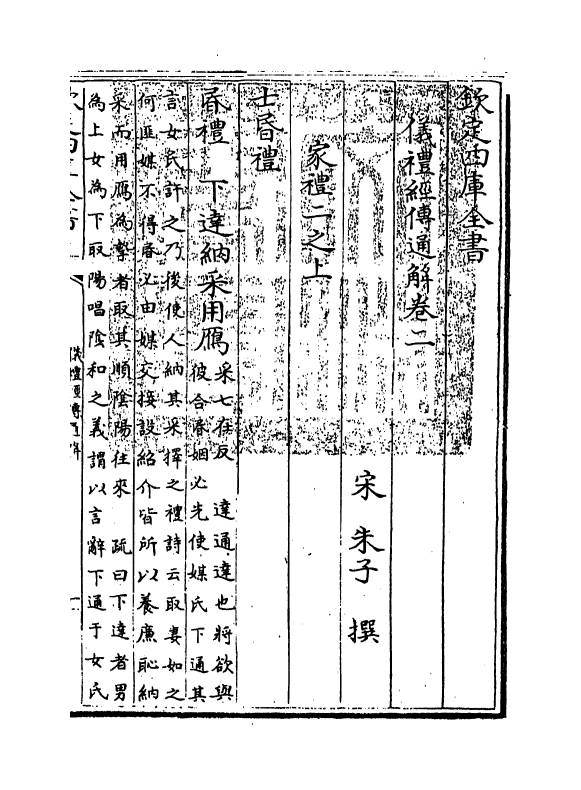 欽定四庫全書
儀禮經傳通解卷二
宋 朱子 撰
家禮二之上
士昏禮
昬禮 下達納采用鴈
采七在反 達通達也將欲與
彼合昏姻必先使媒氏下通其
言女氏許之乃後使人納其采擇之禮詩云取妻如之
何匪媒不得昏必由媒交接設紹介皆所以養廉恥納
采而用鴈為摯者取其順陰陽往來 疏曰下達者男
為上女為下取陽唱陰和之義謂以言辭下通于女氏
儀禮經傳通解
一